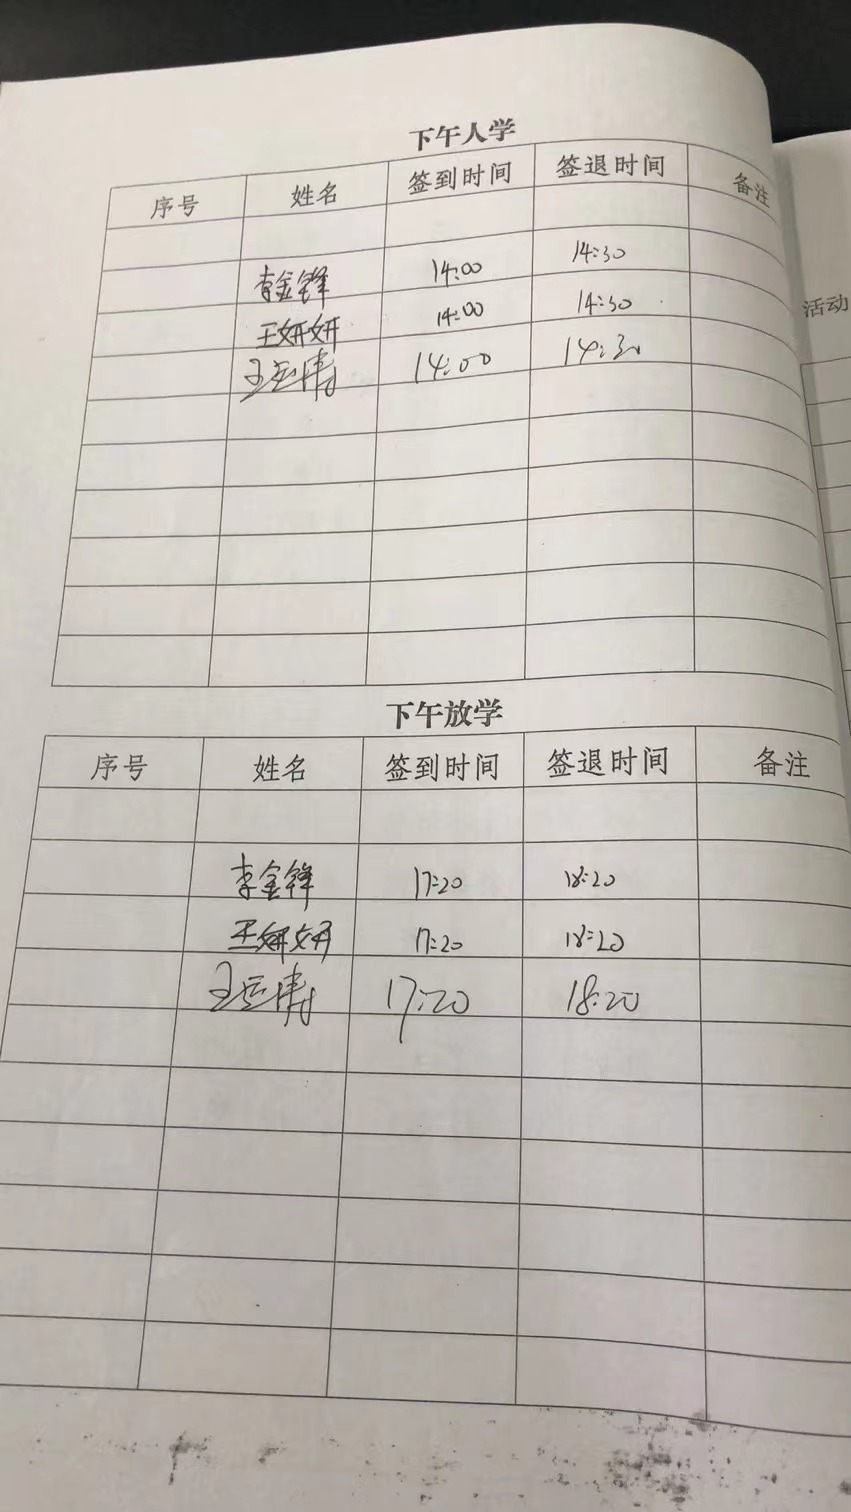 下午人学
序号 姓名 签到时间 签退时间 备注
李金锋 14:00 14:30
王妍妍 14:00 14:30
14:00 14:30
下午放学
序号 姓名 签到时间 签退时间 备注
李金锋 17:20 18:20
王妍妍 17:20 18:20
17:20 18:20
活动